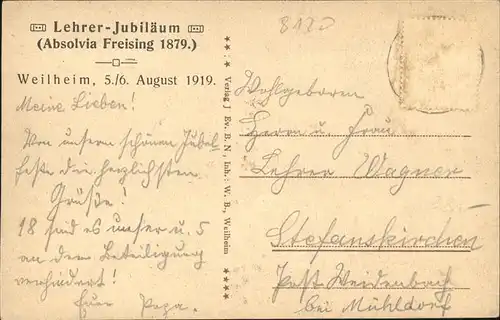 8120
Lehrer-Jubiläum
(Absolvia Freising 1879.)
Weilheim, 5./6. August 1919.
Meine Lieben!
Von unserm schönen Jubel-
feste die herzlichsten
Grüße!
18 sind es unser u. 5
an der Beteiligung
verhindert!
Euer Papa.
Verlag J. Ev. B. N., Inh.: W. B., Weilheim
Wohlgeboren
Herrn u. Frau
Lehrer Wagner
Stefanskirchen
Post Weidenbach
bei Mühldorf